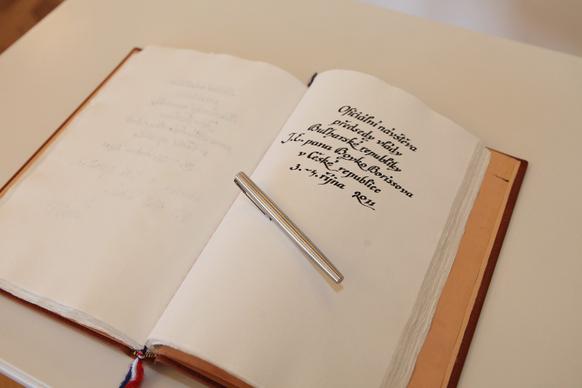 Oficiální návštěva
předsedy vlády
Bulharské republiky
J.E. pana Boyko Borissova
v České republice
3.-4. října 2011